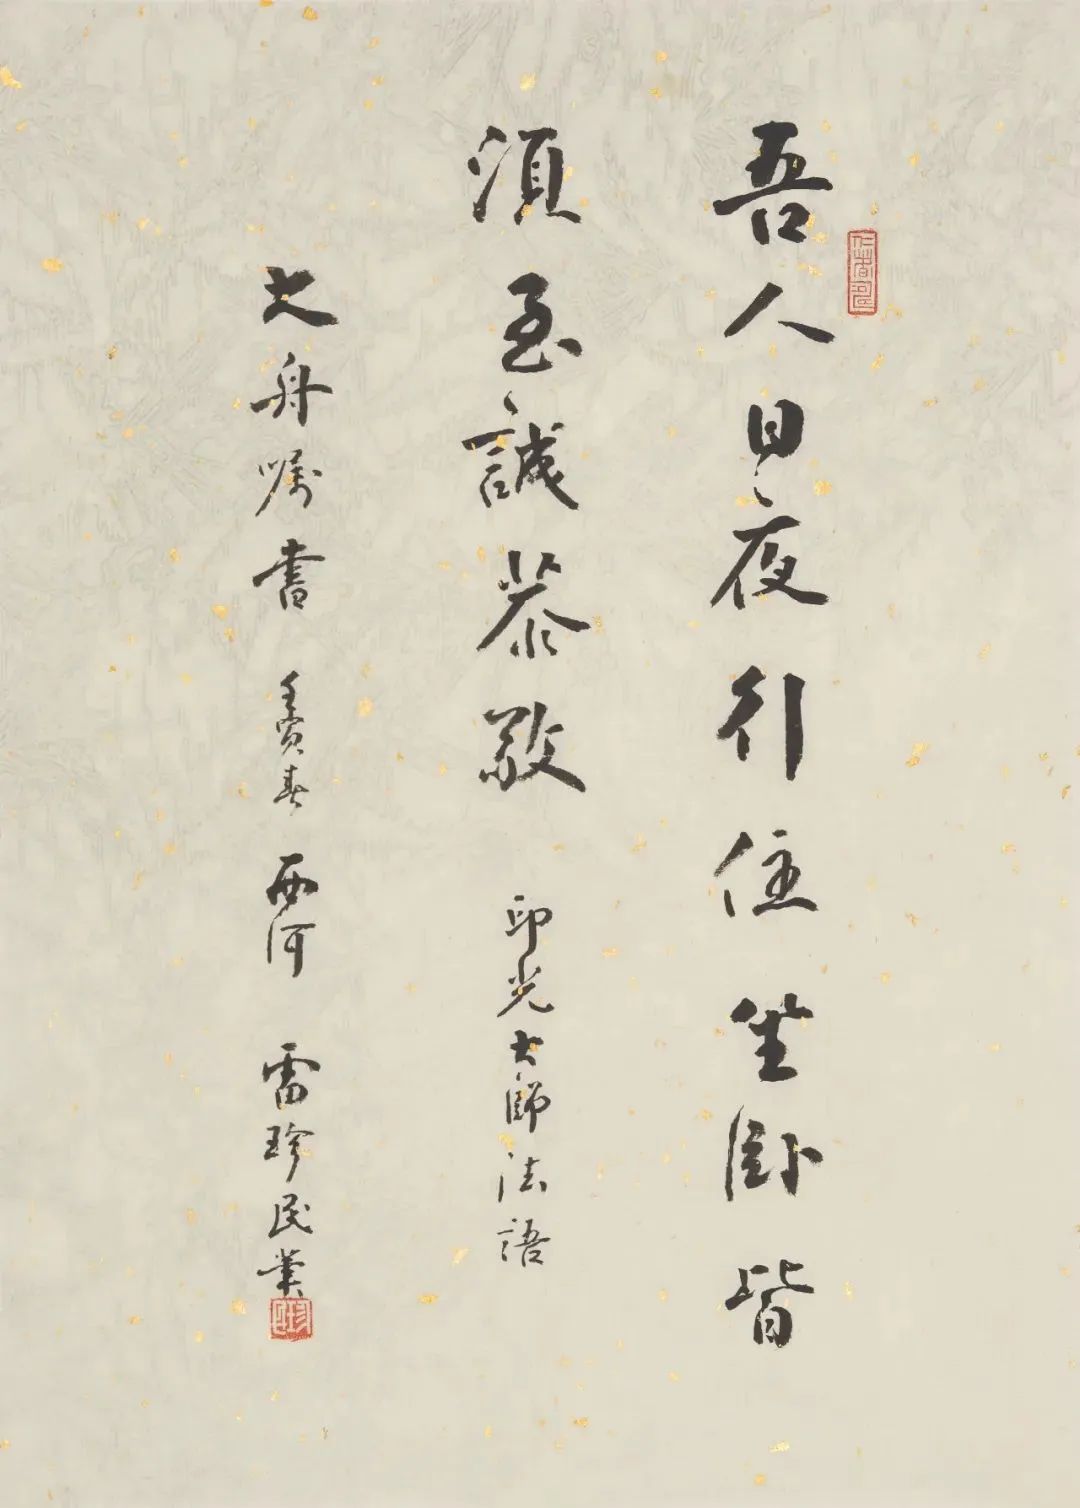 吾人日夜行住坐卧皆
須至誠恭敬 印光大師法語
大舟嘱書 壬寅春 西河 雷珍民業